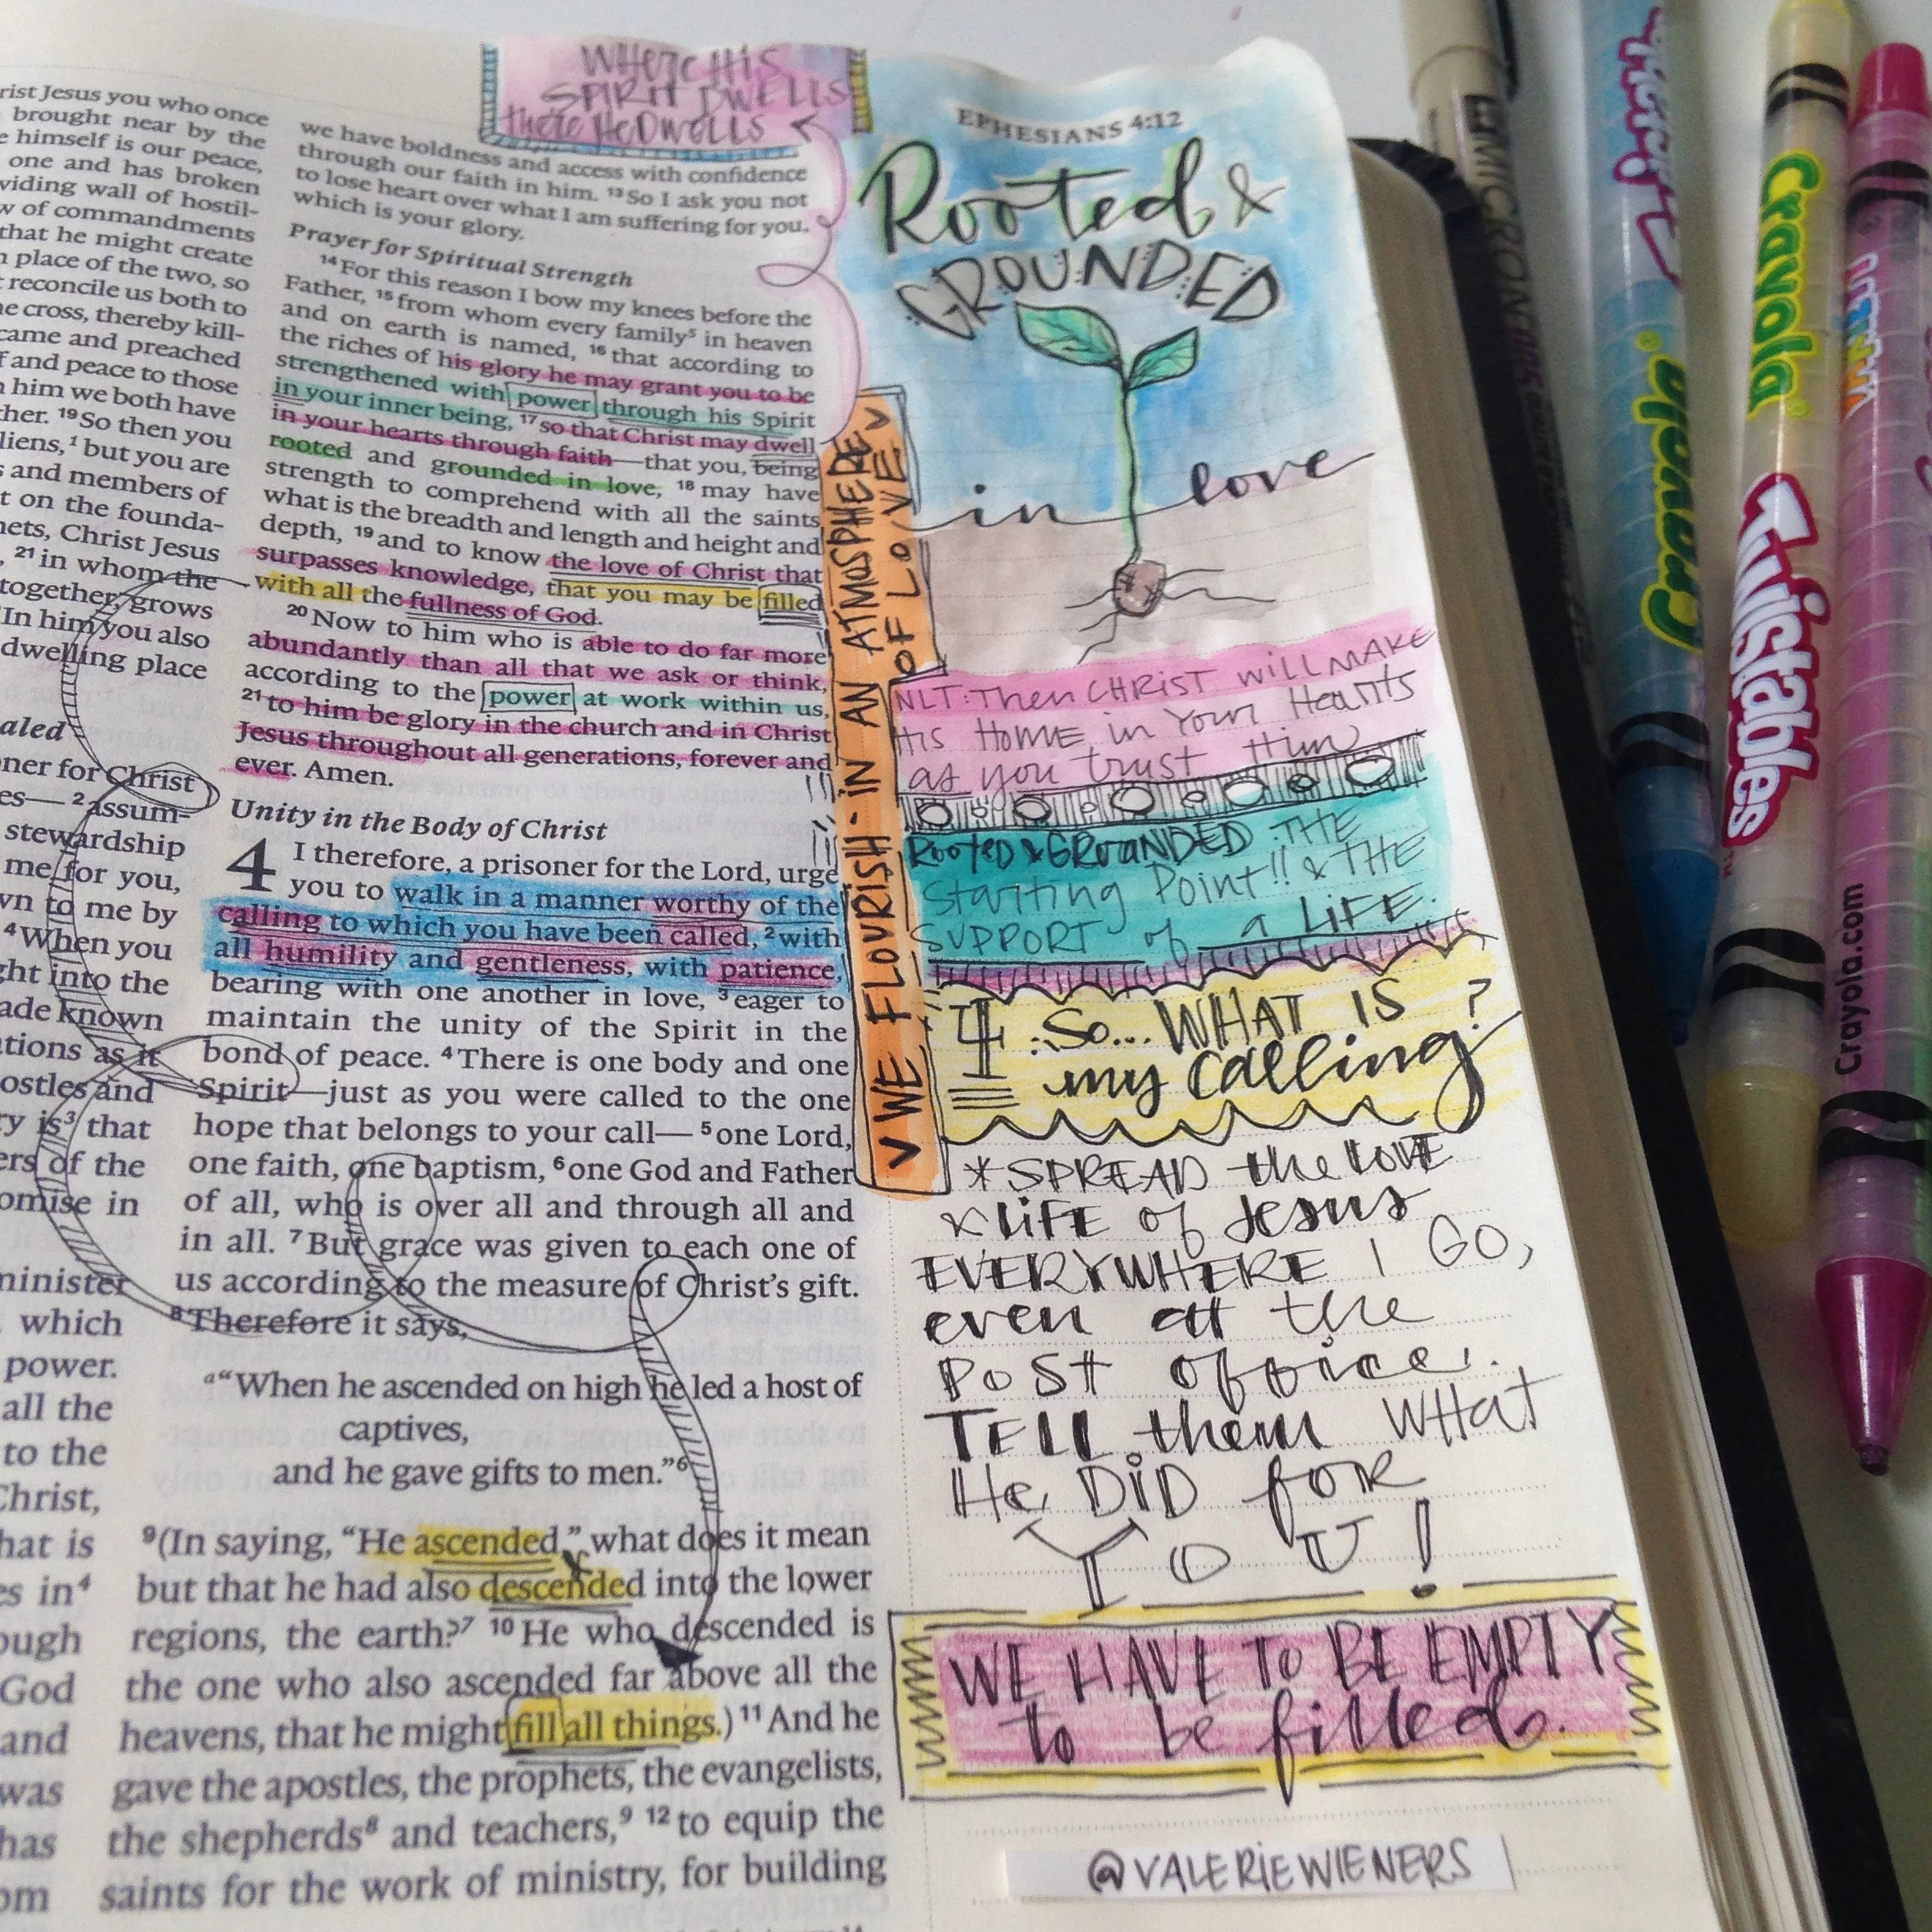 WHERE HIS
SPIRIT DWELLS
there HE DWELLS
EPHESIANS 4:12
rist Jesus you who once
brought near by the
e himself is our peace,
one and has broken
viding wall of hostil-
w of commandments
that he might create
n place of the two, so
t reconcile us both to
he cross, thereby kill-
came and preached
f and peace to those
h him we both have
ther. 19 So then you
liens,1 but you are
s and members of
t on the founda-
nets, Christ Jesus
, 21 in whom the
together, grows
In him you also
dwelling place
aled
ner for Christ
es— 2 assum-
stewardship
me for you,
wn to me by
4 When you
ght into the
ade known
tions as it
ostles and
ry is3 that
ers of the
omise in
minister
which
power.
all the
to the
Christ,
hat is
es in4
ough
God
and
was
has
om
we have boldness and access with confidence
through our faith in him. 13 So I ask you not
to lose heart over what I am suffering for you,
which is your glory.
Prayer for Spiritual Strength
14 For this reason I bow my knees before the
Father, 15 from whom every family5 in heaven
and on earth is named, 16 that according to
the riches of his glory he may grant you to be
strengthened with power through his Spirit
in your inner being, 17 so that Christ may dwell
in your hearts through faith—that you, being
rooted and grounded in love, 18 may have
strength to comprehend with all the saints
what is the breadth and length and height and
depth, 19 and to know the love of Christ that
surpasses knowledge, that you may be filled
with all the fullness of God.
20 Now to him who is able to do far more
abundantly than all that we ask or think,
according to the power at work within us,
21 to him be glory in the church and in Christ
Jesus throughout all generations, forever and
ever. Amen.
Unity in the Body of Christ
4 I therefore, a prisoner for the Lord, urge
you to walk in a manner worthy of the
calling to which you have been called, 2 with
all humility and gentleness, with patience,
bearing with one another in love, 3 eager to
maintain the unity of the Spirit in the
bond of peace. 4 There is one body and one
Spirit—just as you were called to the one
hope that belongs to your call— 5 one Lord,
one faith, one baptism, 6 one God and Father
of all, who is over all and through all and
in all. 7 But grace was given to each one of
us according to the measure of Christ's gift.
8 Therefore it says,
a“When he ascended on high he led a host of
captives,
and he gave gifts to men.”6
9 (In saying, “He ascended,” what does it mean
but that he had also descended into the lower
regions, the earth?7 10 He who descended is
the one who also ascended far above all the
heavens, that he might fill all things.) 11 And he
gave the apostles, the prophets, the evangelists,
the shepherds8 and teachers,9 12 to equip the
saints for the work of ministry, for building
WE FLOURISH - IN AN ATMOSPHERE
OF LOVE
Rooted &
GROUNDED
in love
NLT: Then CHRIST will MAKE
His HOME in Your Hearts
as you trust Him
Rooted & GROUNDED: THE
Starting Point!! & THE
SUPPORT of a LIFE.
4 : So... WHAT IS
my calling?
* SPREAD the LOVE
& LIFE of Jesus
EVERYWHERE I GO,
even at the
POST office.
TELL them WHAT
He DID FOR
YOU!
WE HAVE TO BE EMPTY
to be filled.
@VALERIEWIENERS
MICRON
Crayola
Crayola
Twistables
Crayola.com